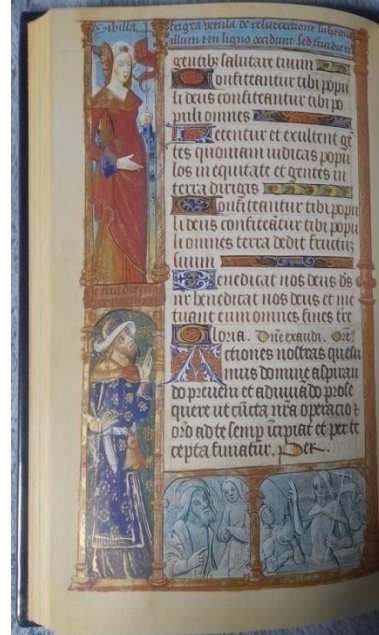 Sibilla
gentibꝫ salutare tuum
Confiteantur tibi popu
li deus confiteantur tibi po
puli omnes
Letentur et exultent gē
tes quoniam iudicas popu
los in equitate et gentes in
terra dirigis
Confiteantur tibi popu
li deus confiteātur tibi popu
li omnes terra dedit fructū
suum
Benedicat nos deus ds̄
nr̄ benedicat nos deus et me
tuant eum omnes fines tr̄e
Gloria. Dn̄e exaudi. Orē.
Actiones nostras quesu
mus domine aspiran
do preueni et adiuuādo prose
quere ut cūcta nr̄a operacio
et per te
cepta finiatur. Per.